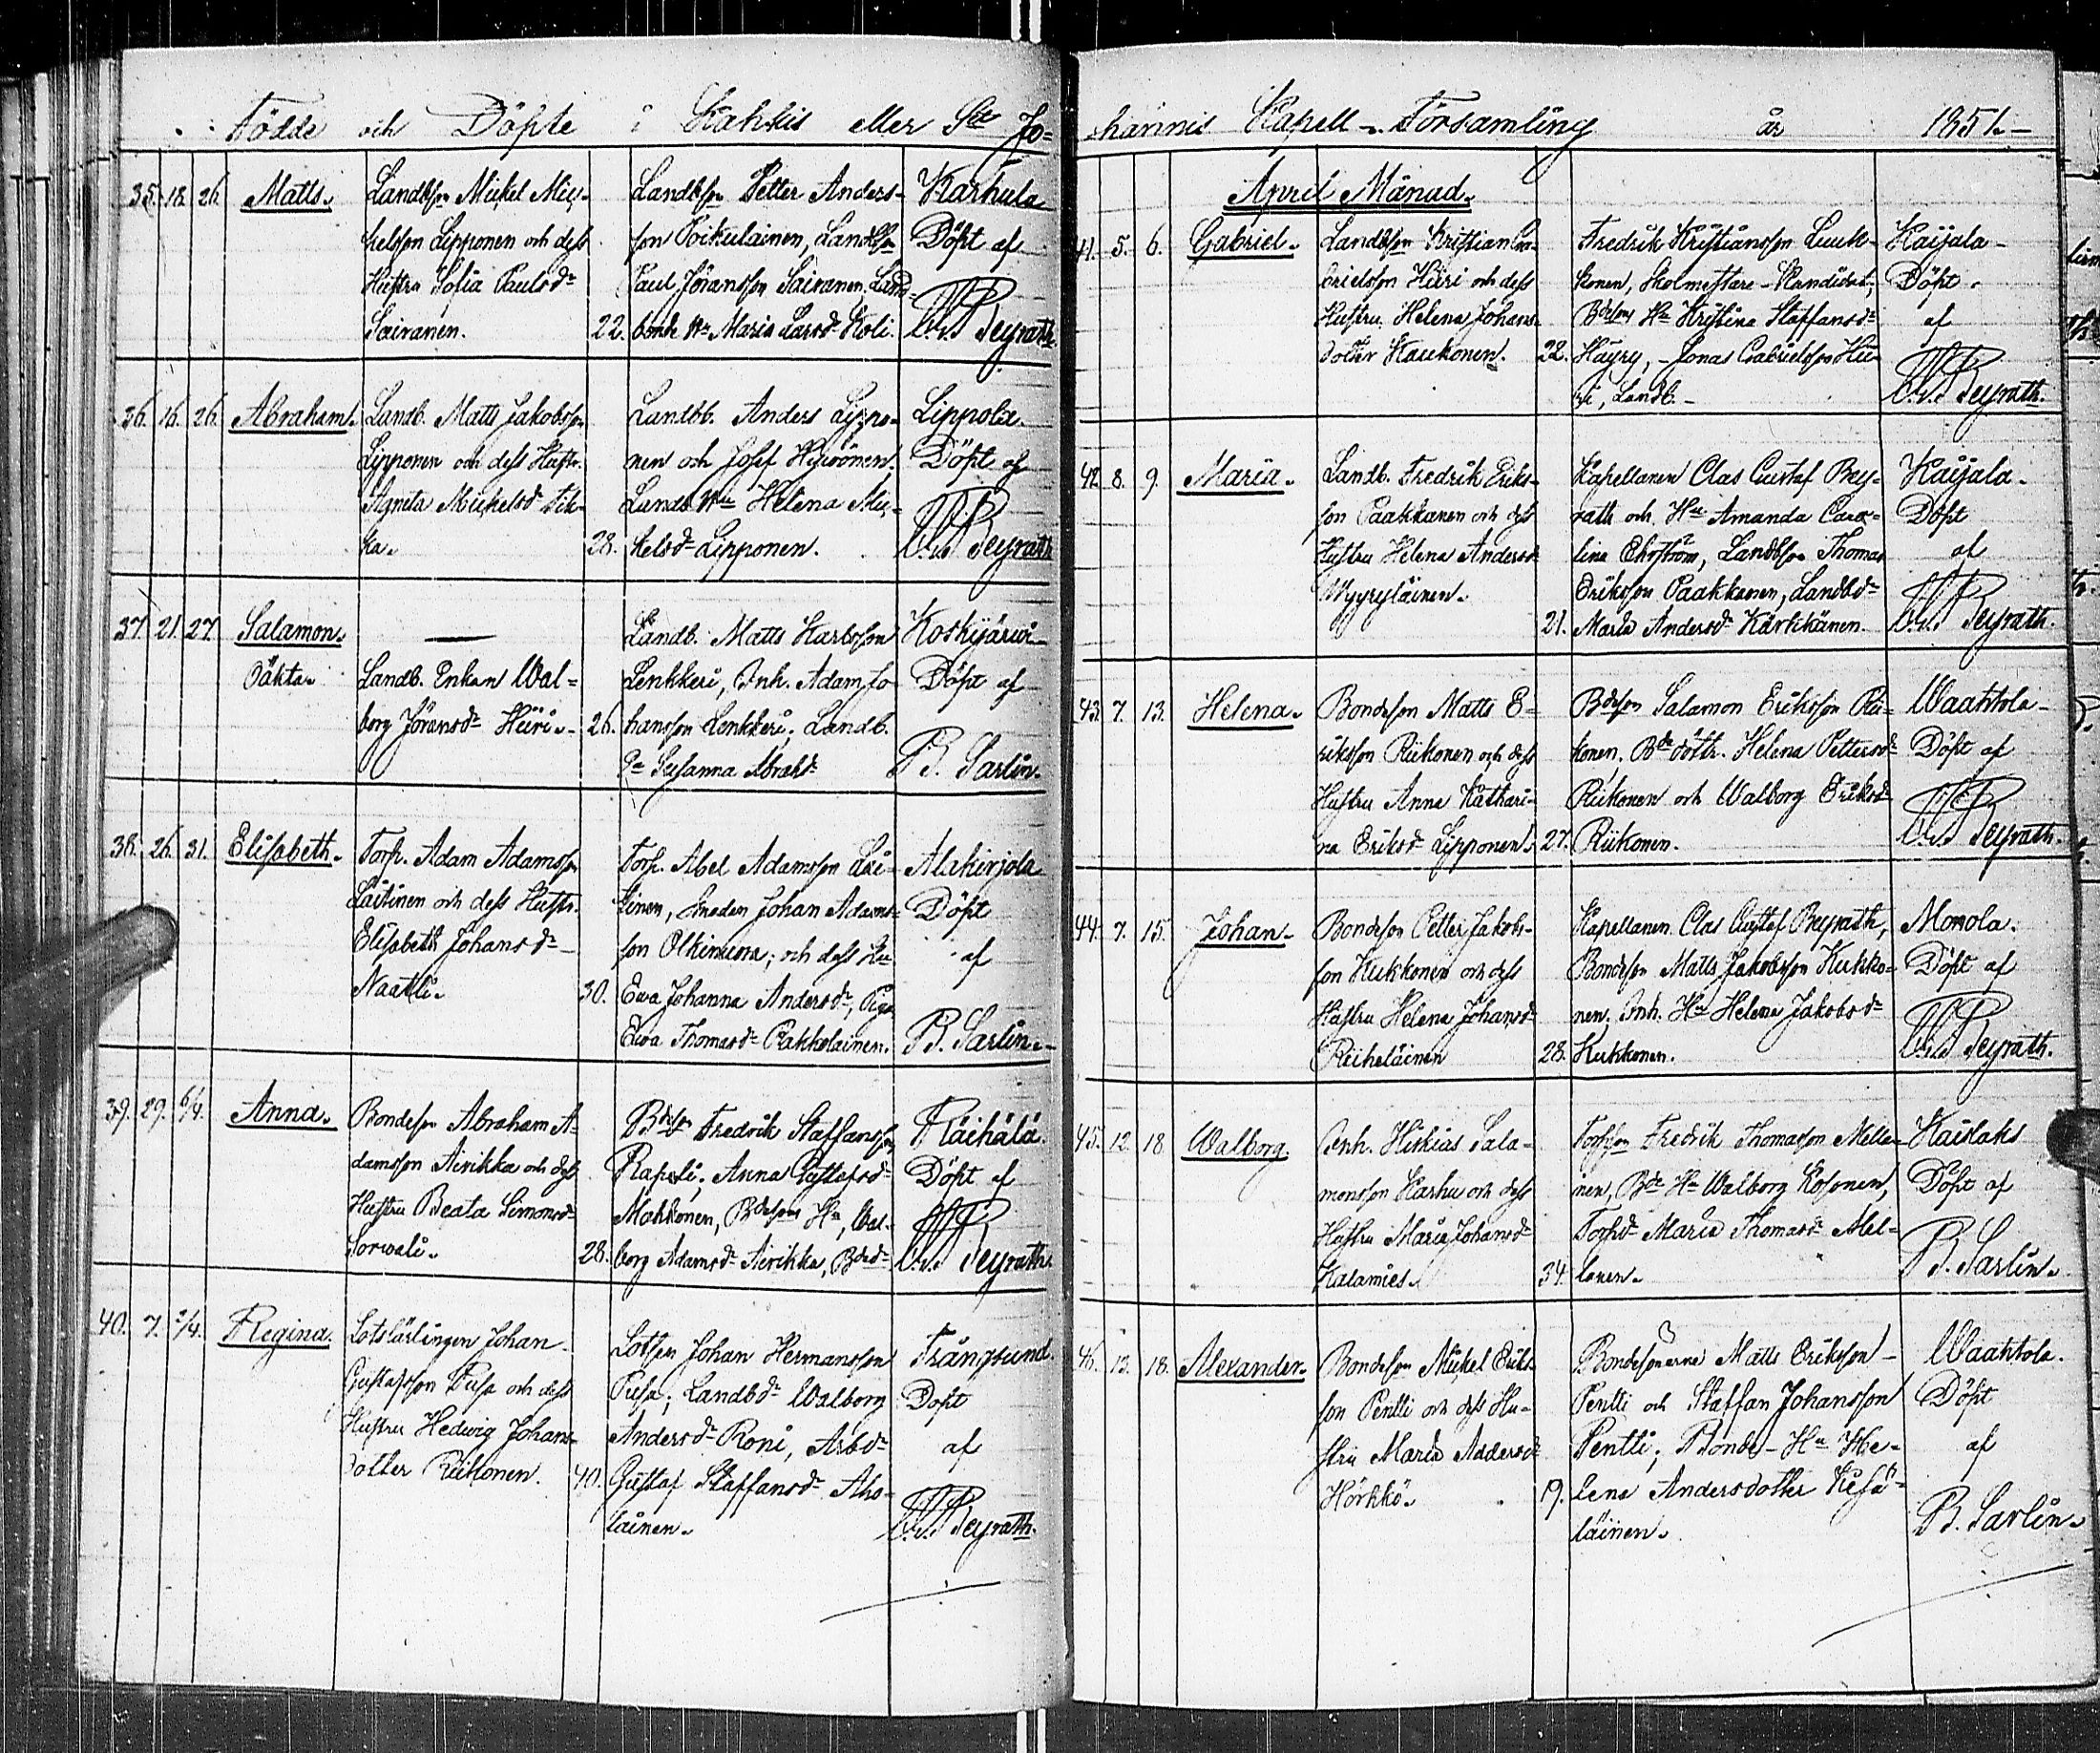 Födde och Döpte i Kakkis eller S:t Jo=
35. 18. 26. Matts. Landbsn Mickel Mic-
kelsson Lipponen och dess
Hustru Sofia Paulsdr
Sairanen. 22.
Landbsn Petter Anders-
son Poikulainen, Landbsn
Paul Jöransson Sairanen, Land-
bonde Hu Maria Larsdr Koli.
Karhula
Döpt af
C.G. Beyrath.
36. 16. 26. Abraham. Landb. Matts Jakobsson
Lipponen och dess Hustr.
Agneta Mickelsdr Tik-
ka. 28.
Landb. Anders Lippo-
nen och Josef Hyvönen.
Landb Hu Helena Mic-
kelsdr Lipponen.
Lippola.
Döpt af
C.G. Beyrath
37. 21. 27. Salamon.
Oäkta.
Landb. Enkan Wal=
borg Jöransdr Hüri. 26.
Landb. Matts Karlsson
Lenkkeri, Inh. Adam Jo
hansson Lenkkeri; Landb.
Pa Susanna Abrahdr
Koskijärwi
Döpt af
B. Sarlin.
38. 26. 31. Elisabeth. Torp. Adam Adamsson
Laitinen och dess Hustr.
Elisabeth Johansdr
Naatti. 30.
Torp. Abel Adamsson Lai-
tinen, Smeden Johan Adams-
son Olkinuora; och dess Hu
Ewa Johanna Andersdr, Piga
Ewa Thomasdr Pakkolainen.
Alakirjola
Döpt
af
B. Sarlin.
39. 29. 6/4. Anna. Bondeson Abraham A-
damsson Airikka och dess
Hustru Beata Simonsdr
Sorwali. 28.
Bdesn Fredrik Staffansson
Rapeli; Anna Gustafsdr
Mahkonen, Bdesons Hu, Wal-
borg Adamsdr Airikka, Bdedr
Räihälä.
Döpt af
C.G. Beyrath.
40. 7. 2/4. Regina. Lotslärlingen Johan
Gustafsson Pusa och dess
Hustru Hedwig Johans-
dotter Riikonen. 40.
Lotsen Johan Hermansson
Pusa; Landbdr Walborg
Andersdr Roni, Arbdr
Gustaf Staffansdr Aho-
lainen.
Trångsund.
Döpt
af
C.G. Beyrath.
hannis Kapell-Församling år 1851.
April Månad.
41. 5. 6. Gabriel. Landbson Kristian Ga-
brielsson Hüri och dess
Hustru Helena Johans-
dotter Kaukonen. 22.
Fredrik Kristiansson Luuk-
konen, Skolmestare-Kandidat;
Bdesons Hu Kristina Staffansdr
Häyry, - Jonas Gabrielsson Hü-
ri, Landb.
Kaijala
Döpt
af
C.G. Beyrath.
42. 8. 9. Maria. Landb. Fredrik Eriks-
son Paakkanen och dess
Hustru Helena Andersdr
Myyryläinen. 21.
Kapellanen Clas Gustaf Bey-
rath och Hu Amanda Caro-
lina Ekström, Landbsn Thomas
Eriksson Paakkanen, Landbdr
Maria Andersdr Kärkkänen.
Kaijala.
Döpt
af
C.G. Beyrath.
43. 7. 13. Helena. Bondeson Matts E-
riksson Riikonen och dess
Hustru Anna Kathari-
na Eriksdr Lipponen. 27.
Bdesn Salamon Eriksson Rii-
konen, Bde dottr. Helena Pettersdr
Riikonen och Walborg Eriksdr
Riikonen.
Waahtola
Döpt af
C.G. Beyrath.
44. 7. 15. Johan. Bondeson Petter Jakobs-
son Kukkonen och dess
Hustru Helena Johansdr
Reiheläinen 28.
Kapellanen Clas Gustaf Beyrath,
Bondeson Matts Jakobsson Kukko-
nen, Inh. Hu Helena Jakobsdr
Kukkonen.
Monola.
Döpt af
C.G. Beyrath.
45. 12. 18. Walborg. Inh. Hiskias Sala-
monsson Karhu och dess
Hustru Maria Johansdr
Kalamies. 34.
Torpson Fredrik Thomasson Mella-
inen, Bde Hu Walborg Kosonen,
Torpdr Maria Thomasdr Mel-
lanen.
Kaislaks
Döpt af
B. Sarlin.
46. 13. 18. Alexander. Bondeson Mickel Eriks-
son Pentti och dess Hu-
stru Maria Andersdr
Hörkkö. 19.
Bondesönerne Matts Eriksson
Pentti och Staffan Johansson
Pentti; Bonde-Hu He-
lena Andersdotter Kesä-
läinen.
Waahtola.
Döpt
af
B. Sarlin.